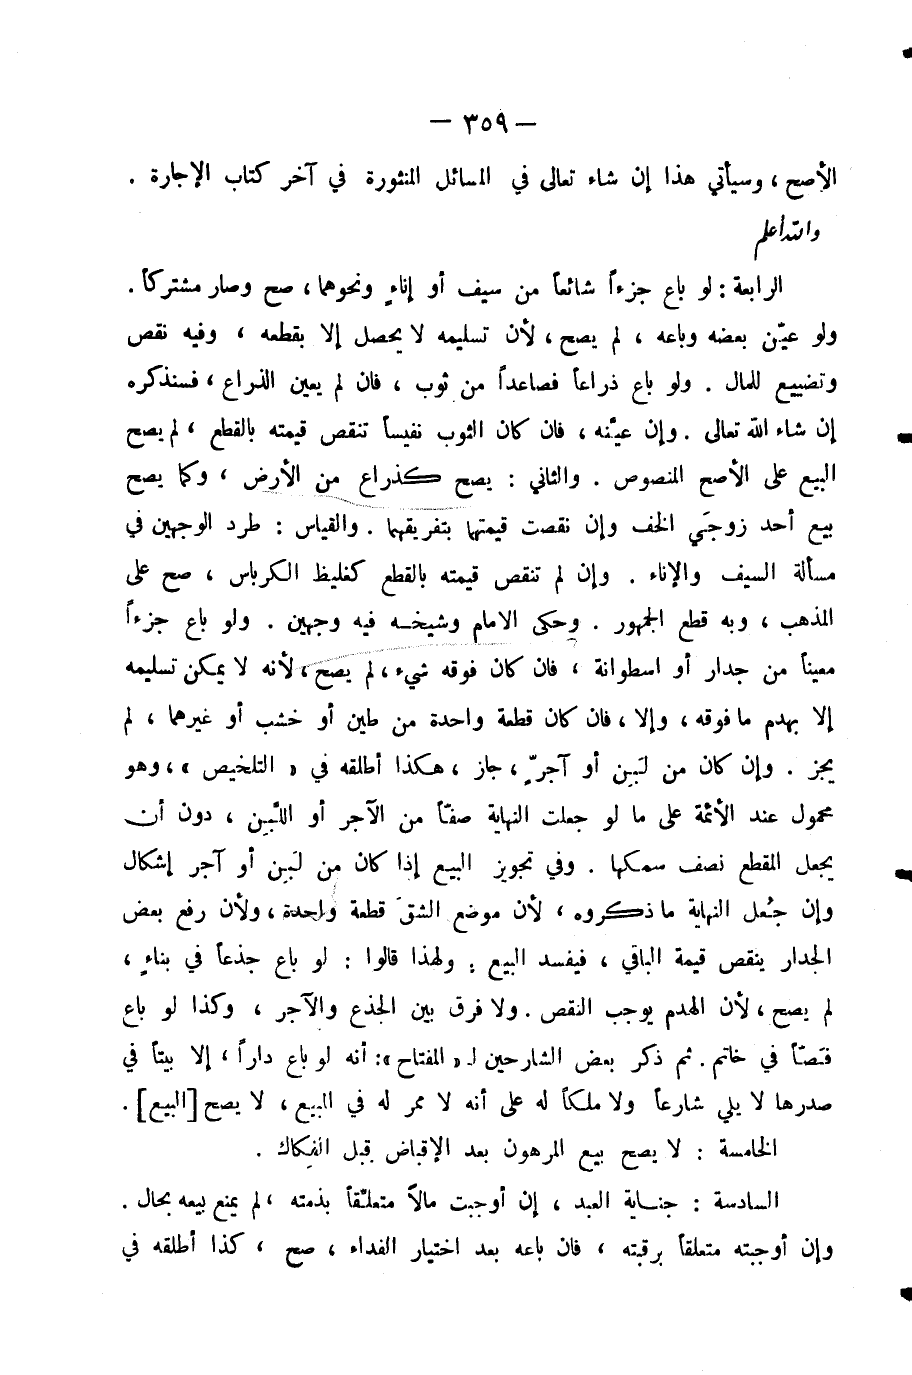 — ٣٥٩ —
الأصح ، وسيأتي هذا إن شاء تعالى في المسائل المنثورة في آخر كتاب الإجارة .
والله أعلم
الرابعة : لو باع جزءاً شائعاً من سيف أو إناءٍ ونحوهما ، صح وصار مشتركاً .
ولو عيّن بعضه وباعه ، لم يصح ، لأن تسليمه لا يحصل إلا بقطعه ، وفيه نقص
وتضييع للمال . ولو باع ذراعاً فصاعداً من ثوب ، فان لم يعين الذراع ، فسنذكره
إن شاء الله تعالى . وإن عيّنه ، فان كان الثوب نفيساً تنقص قيمته بالقطع ، لم يصح
البيع على الأصح المنصوص . والثاني : يصح كذراع من الأرض ، وكما يصح
بيع أحد زوجَي الخف وإن نقصت قيمتها بتفريقهما . والقياس : طرد الوجهين في
مسألة السيف والإناء . وإن لم تنقص قيمته بالقطع كغليظ الكرباس ، صح على
المذهب ، وبه قطع الجمهور . وحكى الامام وشيخه فيه وجهين . ولو باع جزءاً
معيناً من جدار أو اسطوانة ، فان كان فوقه شيء ، لم يصح ، لأنه لا يمكن تسليمه
إلا بهدم ما فوقه ، وإلا ، فان كان قطعة واحدة من طين أو خشب أو غيرهما ، لم
يجز . وإن كان من لَبِن أو آجرٍّ ، جاز ، هكذا أطلقه في « التلخيص » ، وهو
محمول عند الأئمة على ما لو جعلت النهاية صفّاً من الآجر أو اللَّبِن ، دون أن
يجعل المقطع نصف سمكها . وفي تجويز البيع إذا كان من لَبِن أو آجر إشكال
وإن جُعل النهاية ما ذكروه ، لأن موضع الشق قطعة واحدة ، ولأن رفع بعض
الجدار ينقص قيمة الباقي ، فيفسد البيع . ولهذا قالوا : لو باع جذعاً في بناءٍ ،
لم يصح ، لأن الهدم يوجب النقص . ولا فرق بين الجذع والآجر ، وكذا لو باع
فَصّاً في خاتم . ثم ذكر بعض الشارحين لـ « المفتاح » : أنه لو باع داراً ، إلا بيتاً في
صدرها لا يلي شارعاً ولا ملكاً له على أنه لا ممر له في المبيع ، لا يصح [البيع] .
الخامسة : لا يصح بيع المرهون بعد الإقباض قبل الفِكاك .
السادسة : جناية العبد ، إن أوجبت مالاً متعلّقاً بذمته ، لم يمنع بيعه بحال .
وإن أوجبته متعلقاً برقبته ، فان باعه بعد اختيار الفداء ، صح ، كذا أطلقه في